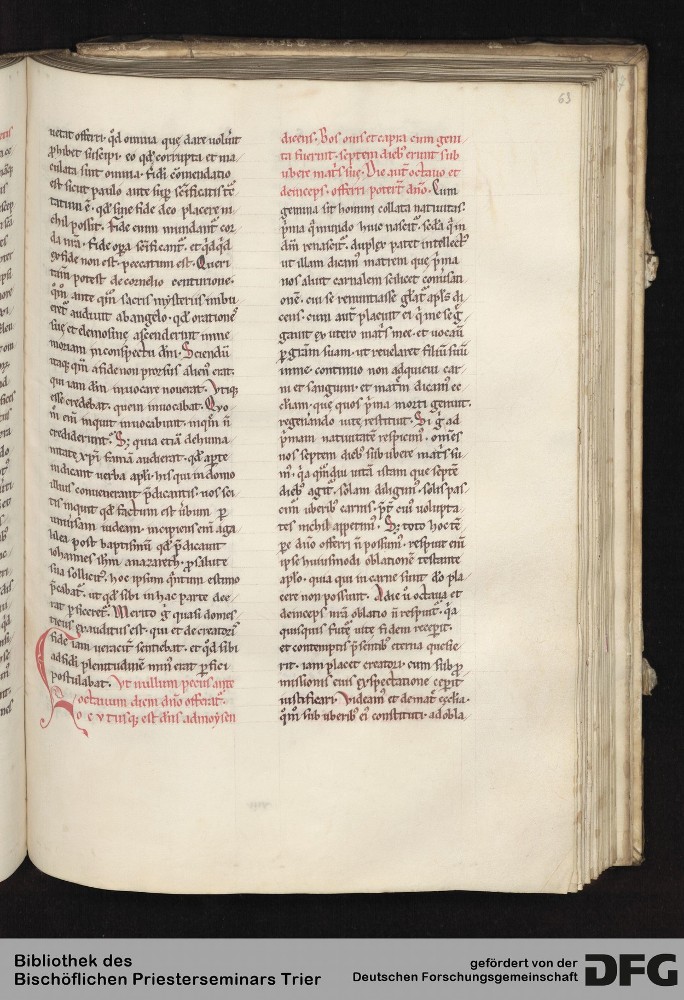 63
uetat offerri. qd̄ omnia que dare uolūt
ꝓhibet suscipi. eo qd̄ corrupta et ma/
culata sint omnia. fidei cōmendatio
est sicut paulo ante suꝑ
tatum ē. qd̄ sine fide deo placere ni/
chil possit. Fide enim mundant̄ cor/
da nr̄a. fide oꝑa
ex fide non est. peccatum est. Queri
tam̄ potest de cornelio centurione.
qm̄ ante qm̄ sacris mysteriis imbu/
eret̄ audiuit ab angelo. qd̄ orationes
sue et elemosine ascenderint in me/
moriam in conspectu dn̄i. Sciendū
itaq; qm̄ a fide non prorsus alien' erat.
qui iam dm̄ inuocare nouerat. Vtiq;
esse credebat. quem inuocabat. Quo
m̄ em̄ inquit inuocabunt. in qm̄ n̄
crediderunt. S; quia etiā de huma/
nitate xp̄i famā audierat. qd̄ aꝑte
indicant uerba apl̄i. his qui in domo
illius conuenerant p̄dicantis. uos sci/
tis inquit qd̄ factum est uerbum ꝑ
uniuersam iudeam. incipiens em̄ a ga/
lilea post baptismū qd̄ p̄dicauit
iohannes ihm̄ a nazareth. ꝓ salute
sua sollicit'. hoc ipsum q̄ntum estimo
p̄cabat̄. ut qd̄ sibi in hac parte dee/
rat ꝑficeret̄. Merito g̊ quasi domes/
ticus exauditus est. qui et de creatoris
fide iam ueracit̄ sentiebat. et qd̄ sibi
ad fidei plenitudinē min' erat ꝑfici
postulabat. Vt nullum pecus ante
octauum diem dn̄o offerat̄.
Locutusq; est dn̄s ad moysen
dicens. Bos ouis et capra cum geni/
ta fuerint. septem dieb' erunt sub
ubere matris sue. Die aut̄ octauo et
deinceps. offerri poterit dn̄o. Cum
gemina sit homini collata natiuitas.
p̄ma q̄ mundo huic nascit̄. scd̄a q̄ in
dm̄ renascit̄. duplex patet intellect'
ut illam dicam' matrem que p̄ma
nos aluit carnalem scilicet conuersati/
onē. cui se renuntiasse glat̄ apl̄s di/
cens. cum aut̄ placuit ei q̄ me seg̊/
gauit ex utero matris mee. et uocauit
ꝑ gr̄am suam. ut reuelaret filiū suū
in me. continuo non adquieui car/
ni et sanguini. et matrem dicam' ec/
clīam. que quos p̄ma morti genuit.
regenerando uite restituit. Si g̊ ad
p̄mam natiuitatē respicim'. om̄es
nos septem dieb' sub ubere matris su/
m'. q̄a qm̄diu uitā istam que septē
dieb' agit̄. solam diligim'. solis pas/
cim' uberib' carnis. p̄t̄ ei' uolupta
tes nichil appetim'. S; toto hoc tē/
pe dn̄o offerri n̄ possum'. respuit em̄
ipse huiusmodi oblationē testante
apl̄o. quia qui in carne sunt dō pla/
cere non possunt. A die ū octaua et
deinceps nr̄a oblatio n̄ respuit̄. q̄a
quisquis future uite fidem receperit.
et contemptis p̄sentib' eterna quesie/
rit. iam placet creatori. cum sub ꝓ
missionis eius expectatione ceperit
iustificari. Videam' et de matre ecclīa.
qm̄ sub uberib' ei' constituti. ad obla/
Bibliothek des
Bischöflichen Priesterseminars Trier
gefördert von der
Deutschen Forschungsgemeinschaft
DFG